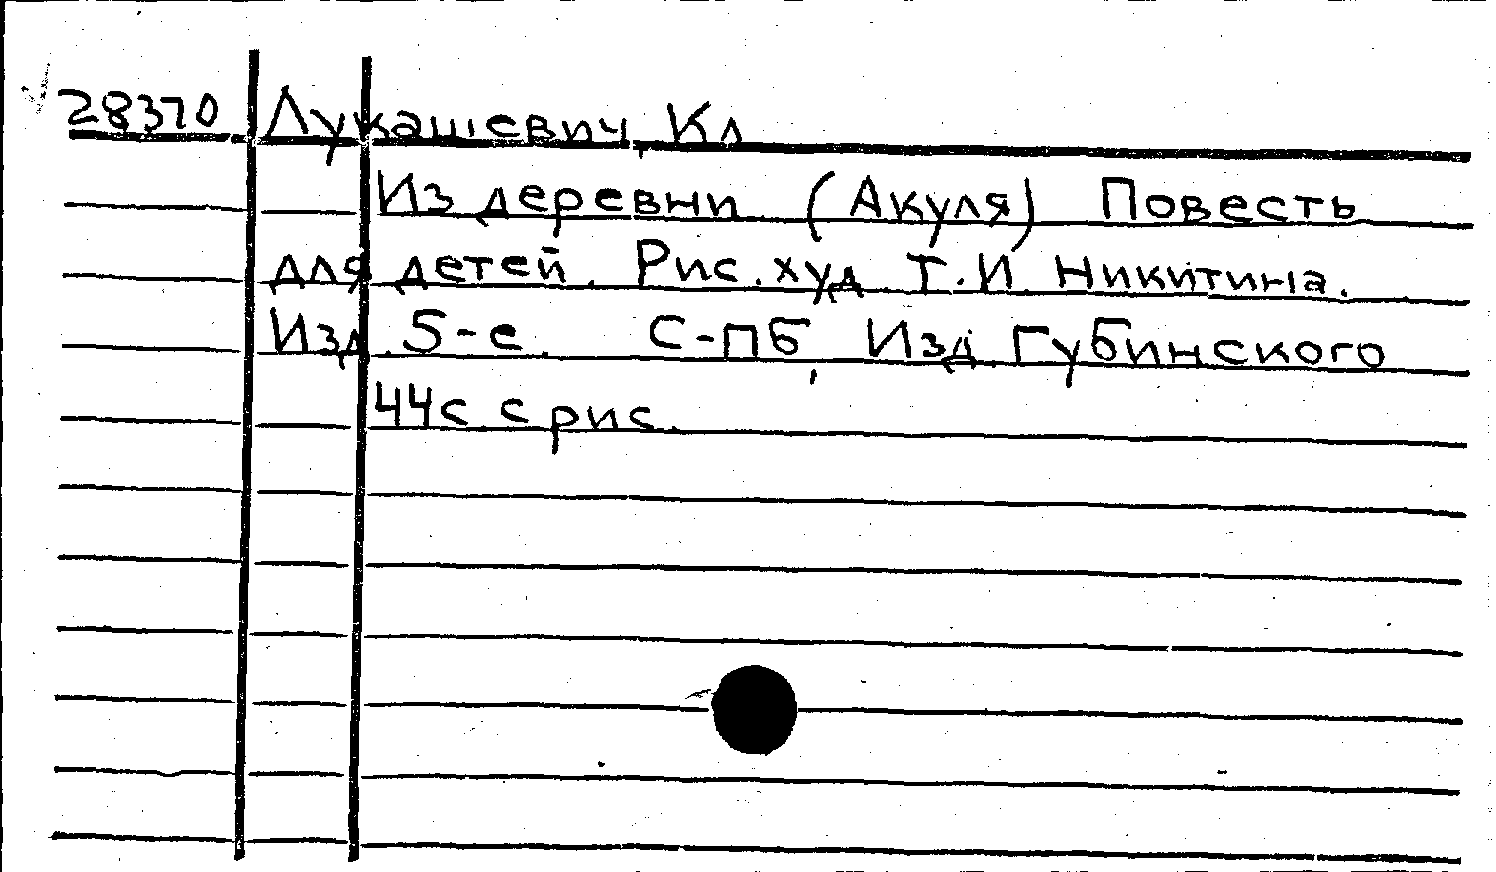 28370 Лукашевич, Кл
Из деревни. (Акуля) Повесть
для детей. Рис. худ. Т. И. Никитина.
Изд. 5-е. С-ПБ, Изд. Губинского
44с. с рис.